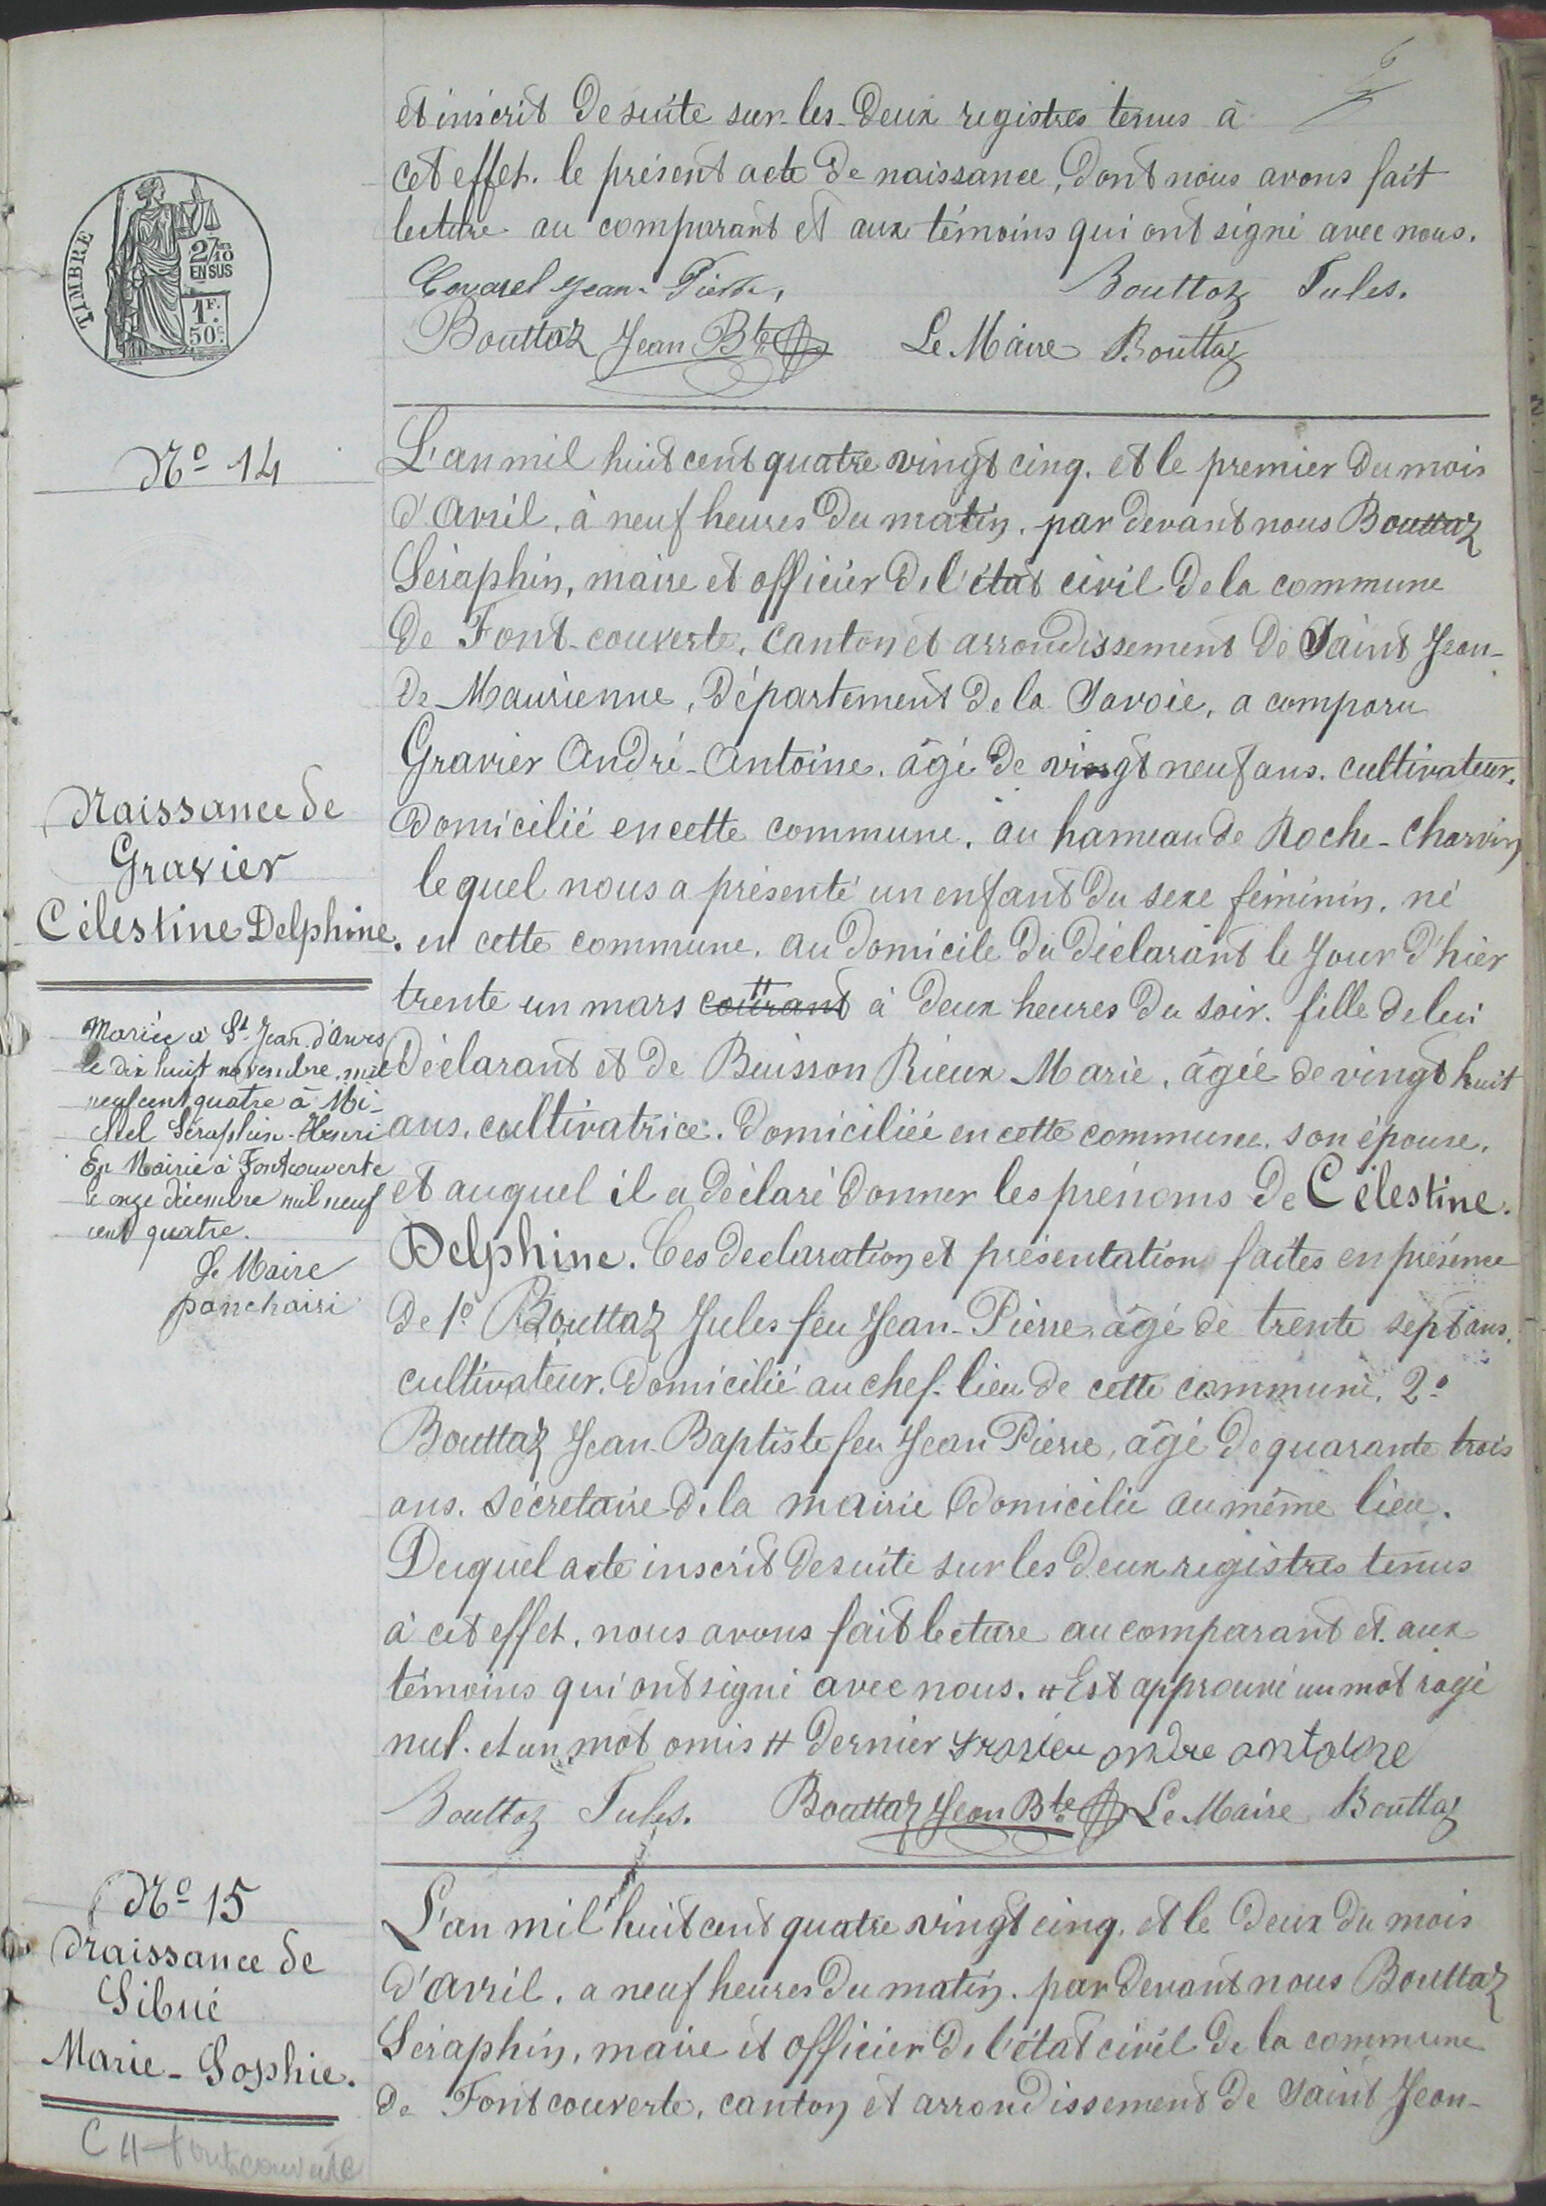 6
et inscrit de suite sur les deux registres tenus à
cet effet. le présent acte de naissance, dont nous avons fait
lecture au comparant et aux témoins qui ont signé avec nous.
Jean-Pierre, Bouttaz Jules.
Bouttaz Jean Bte Le Maire Bouttaz
TIMBRE
2/10 EN SUS
1F. 50c.
No 14
Naissance de
Gravier
Célestine Delphine.
L'an mil huit cent quatre vingt cinq. et le premier du mois
d'Avril, à neuf heures du matin. par devant nous Bouttaz
Séraphin, maire et officier de l'état civil de la commune
de Font-couverte, canton et arrondissement de Saint Jean-
de Maurienne, Département de la Savoie, a comparu
Gravier André-Antoine. âgé de vingt neuf ans. cultivateur.
domicilié en cette commune. au hameau de Roche-Charvin
lequel nous a présenté un enfant du sexe féminin. né
en cette commune. au domicile du déclarant le jour d'hier
trente un mars # courant à deux heures du soir. fille de lui
déclarant et de Buisson Rieux Marie, âgée de vingt huit
ans, cultivatrice. domiciliée en cette commune. son épouse.
et auquel il a déclaré donner les prénoms de Célestine.
Delphine. Ces declaration et présentation faites en présence
de 1o Bouttaz Jules feu Jean-Pierre, âgé de trente sept ans.
cultivateur. domicilié au chef-lieu de cette commune. 2o
Bouttaz Jean-Baptiste feu Jean Pierre, âgé de quarante trois
ans. sécretaire de la mairie domicilié au même lieu.
Duquel acte inscrit de suite sur les deux registres tenus
à cet effet. nous avons fait lecture au comparant et aux
témoins qui ont signé avec nous. # Est approuvé un mot rayé
nul. et un mot omis # dernier Gravier andre antoine
Bouttaz Jules. Bouttaz Jean Bte Le Maire Bouttaz
Mariée à St Jean d'Arves
le dix huit novembre mil
neuf cent quatre à Mi-
chel Séraphin-Henri
En Mairie à Fontcouverte
le onze décembre mil neuf
cent quatre.
Le Maire
No 15
Naissance de
Sibué
Marie-Sophie.
L'an mil huit cent quatre vingt cinq. et le deux du mois
d'avril. a neuf heures du matin. par devant nous Bouttaz
Séraphin, maire et officier de l'état civil de la commune
de Fontcouverte, canton et arrondissement de Saint Jean-
Fontcouverte